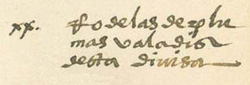 xx. Rodelas de plu
mas valadis
desta divisa